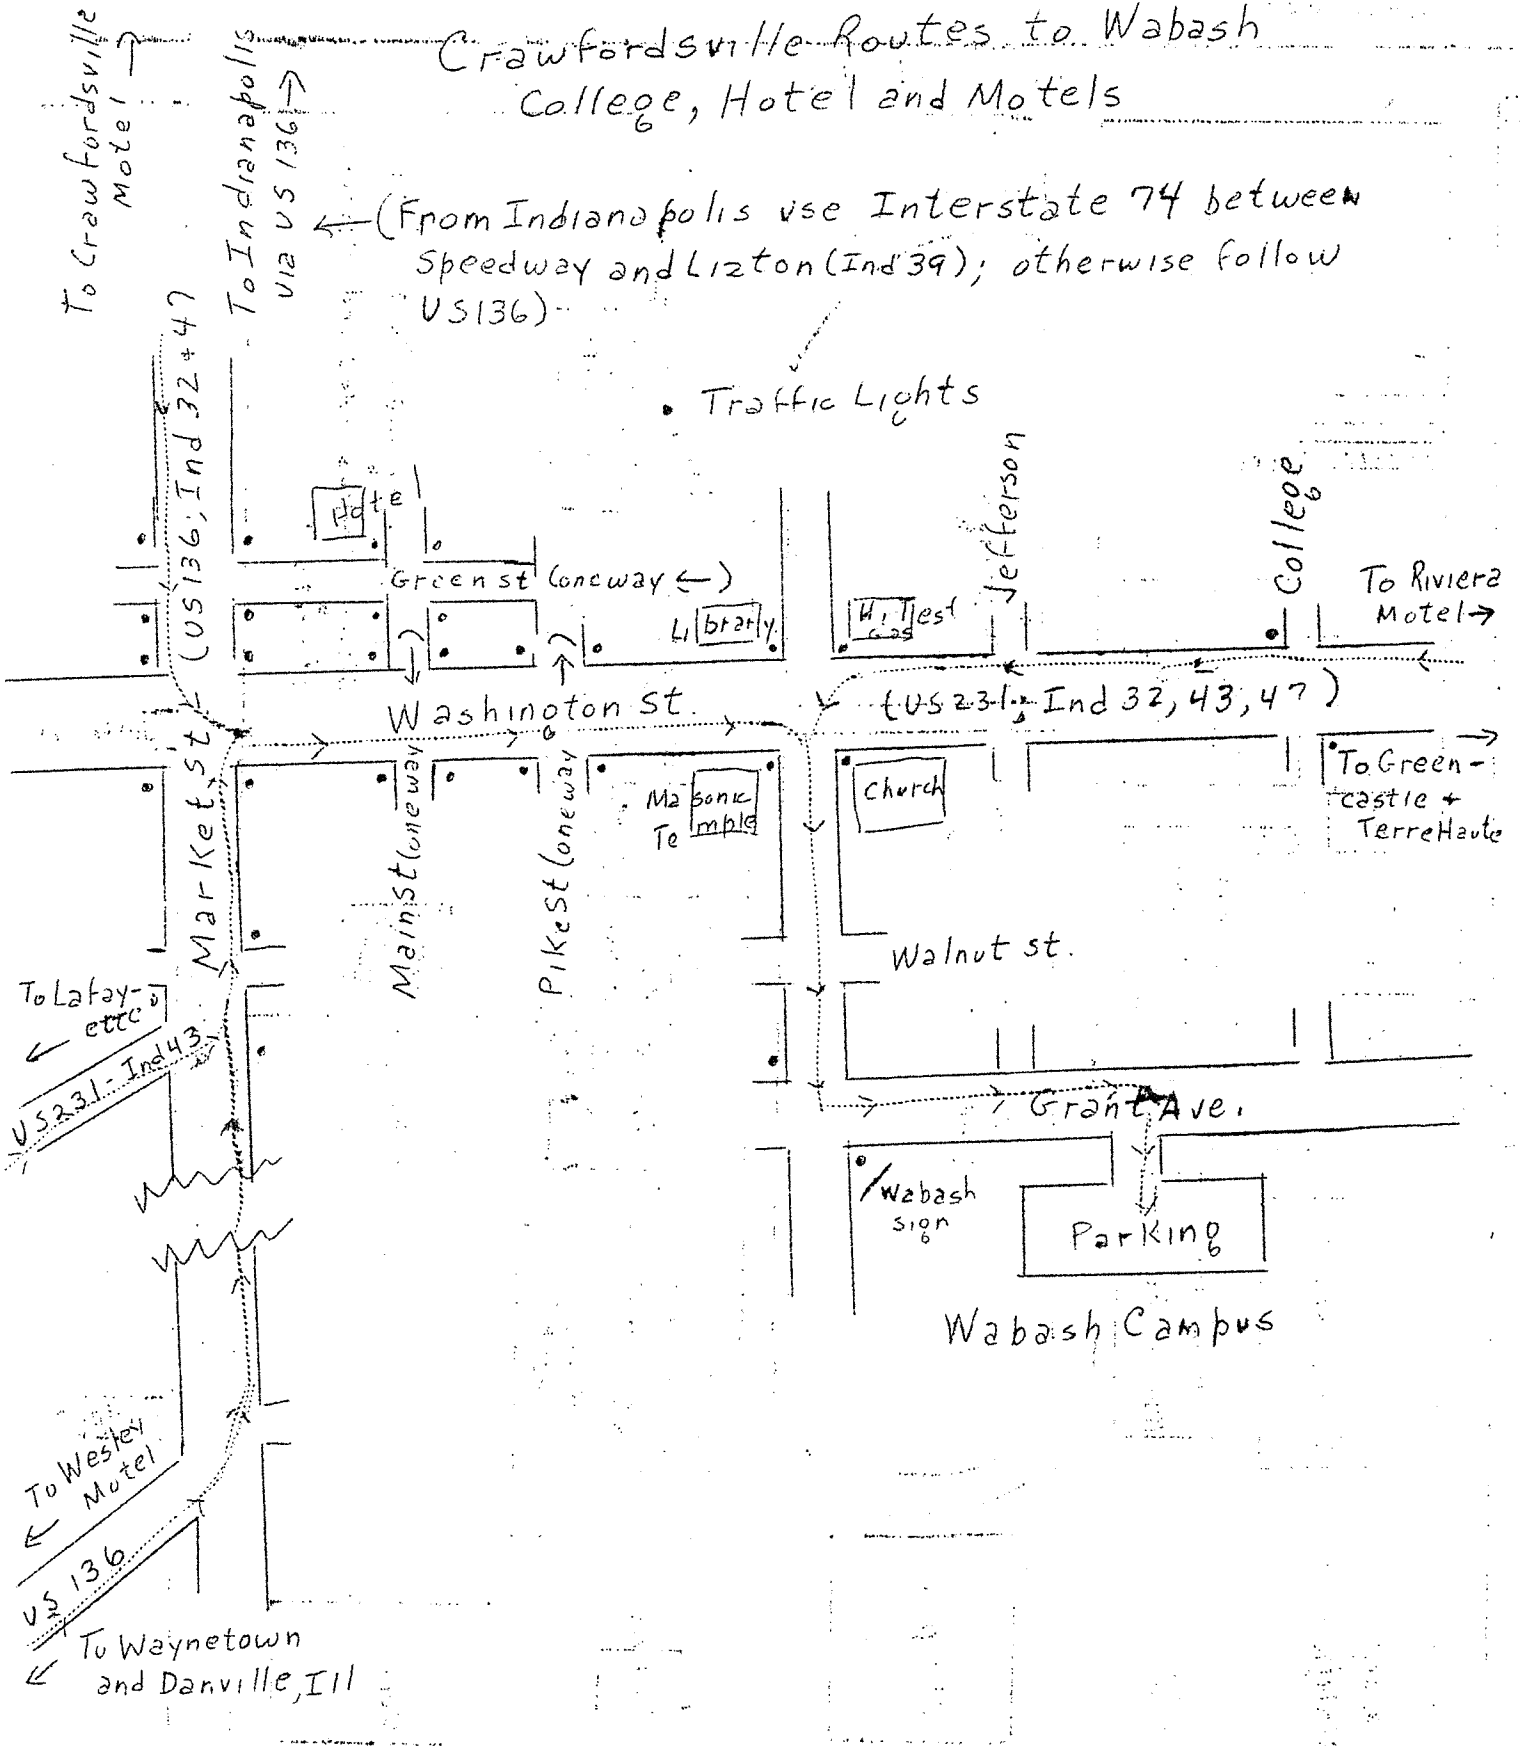 Crawfordsville Routes to Wabash
College, Hotel and Motels
To Crawfordsville
Motel →
To Indianapolis
via US 136 →
← (From Indianapolis use Interstate 74 between
Speedway and Lizton (Ind 39); otherwise follow
US136)
• Traffic Lights
(US 136; Ind 32 + 47
Hotel
Green st (one way ←)
Library
Hi Test
Gas
Jefferson
College
To Riviera
Motel →
Washington St.
(US 231; Ind 32, 43, 47)
Market st
Main st (one way →)
Pike St (one way →)
Masonic
Temple
Church
To Green-
castle +
Terre Haute
Walnut st.
To Lafay-
ette
←
US231-Ind43
Grant Ave.
Wabash
sign
Parking
Wabash Campus
To Wesley
Motel
←
US 136
To Waynetown
← and Danville, Ill